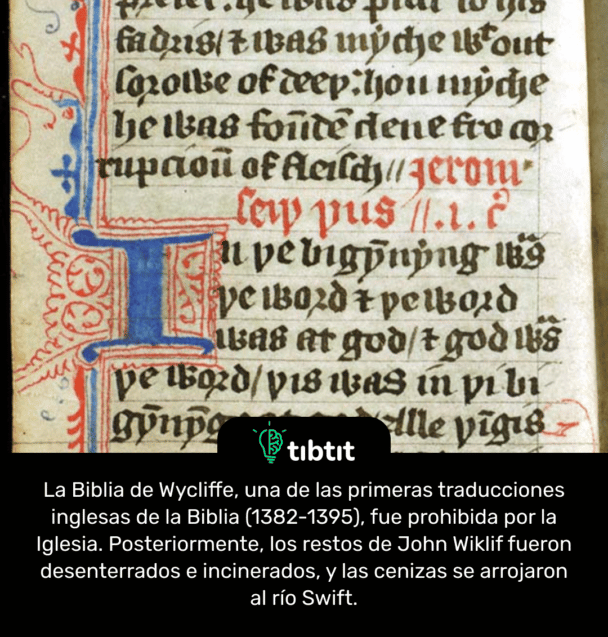 fadris/ ⁊ was myche wᵗout
sorowe of deeþ: hou myche
he was foūdē clene fro cor
rupcioū of fleisch// Jerom
seiþ þus //.1. cͦ
In þe bigȳnȳng was
þe word ⁊ þe word
was at god/ ⁊ god was
þe word/ þis was in þi bi
alle þīgis
tıbtıt
La Biblia de Wycliffe, una de las primeras traducciones
inglesas de la Biblia (1382-1395), fue prohibida por la
Iglesia. Posteriormente, los restos de John Wiklif fueron
desenterrados e incinerados, y las cenizas se arrojaron
al río Swift.